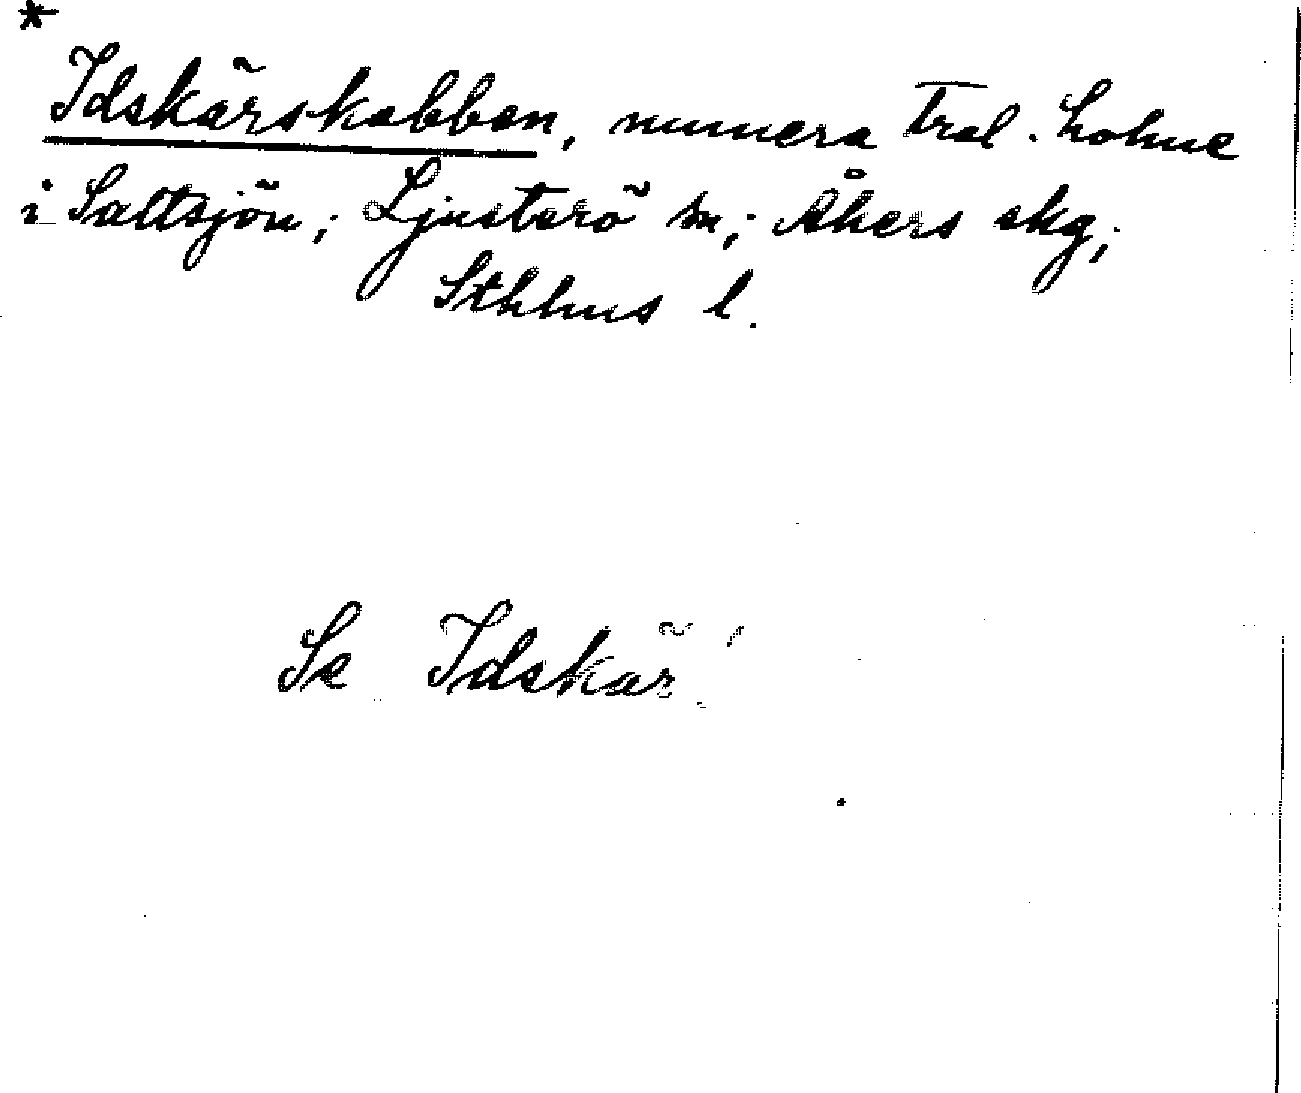 *
Idskärskobben, numera trol. holme
i Saltsjön; Ljusterö sn; Åkers skg;
Sthlms l.
Se Idskär!